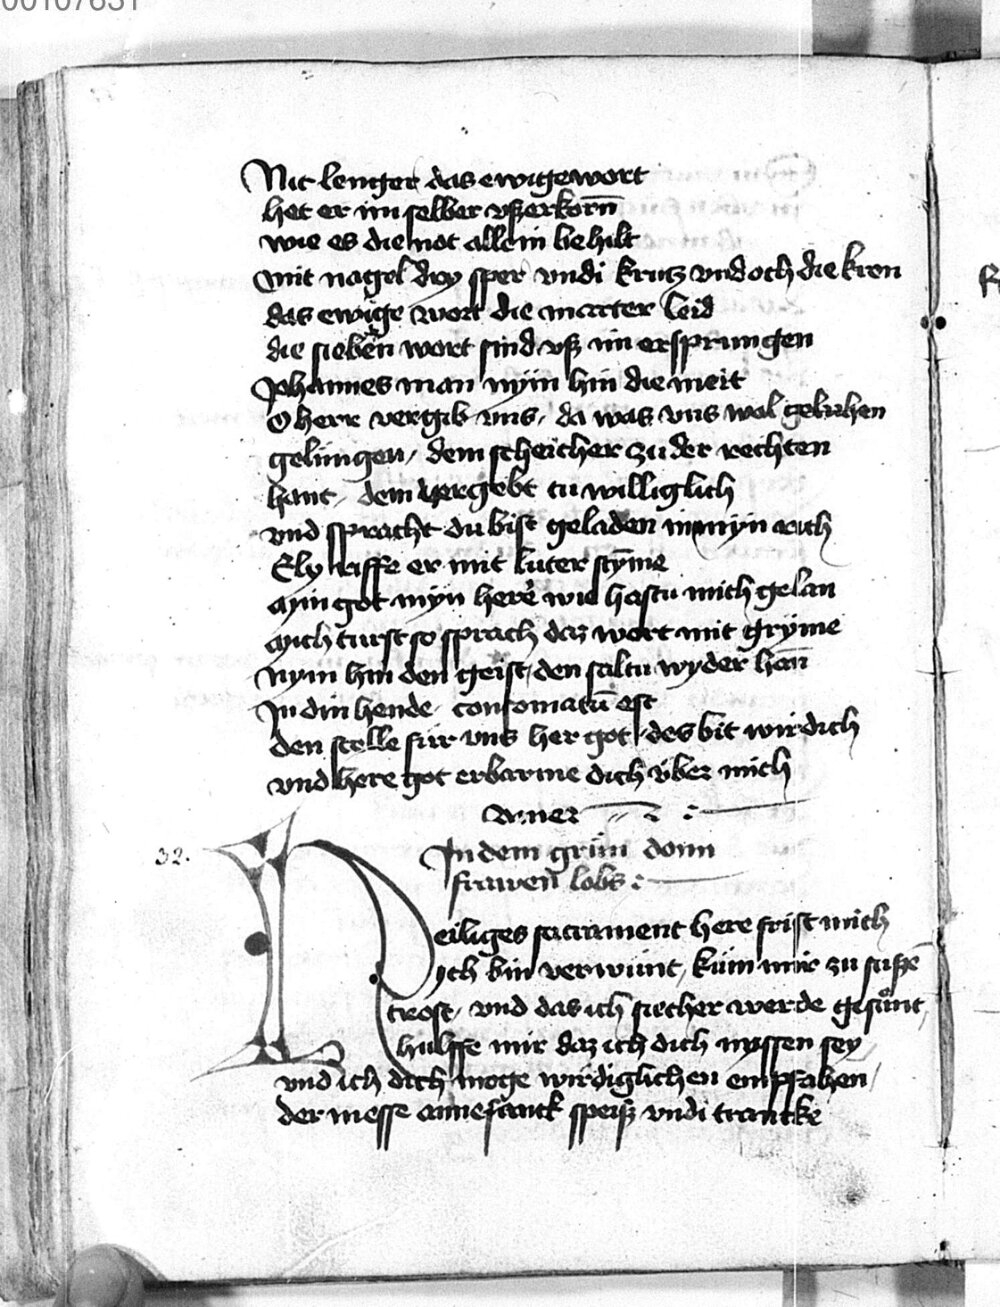 00107631
Nit lenger das ewige wort
het er im selber vßerkorn̄
wie es die not allein behilt
mit nagel dry sper vndi krutz vnd och die kron
das ewige wort die marter leid
die sieben wort sind vß im ersprungen
Johannes man nym hin die meit
O herr vergib uns / da was vns wol gelu
gelungen / dem schecher zu der rechten
hant / dem vergebt tu williglich
vnd spracht du bist geladen in myn rich
Ely rieffe er mit luter styme
myn got myn here wie hastu mich gelan
mich turst so sprach daz wort mit gryme
nym hin den geist / den saltu wyder han̄
In din hende consomatū est
den stelle fur vns her got / des bit wir dich
vnd here got erbarme dich vber mich
amer
32. In dem grun donn
frauwen lobs
Heiliges sacrament here frist mich
ich bin verwunt / kum mir zu suße
trost / vnd das ich siecher werde gesunt
hulffe mir daz ich dich nyssen sey
vnd ich dich moge wirdiglichen empfahen /
der messe speiß vndi trancke